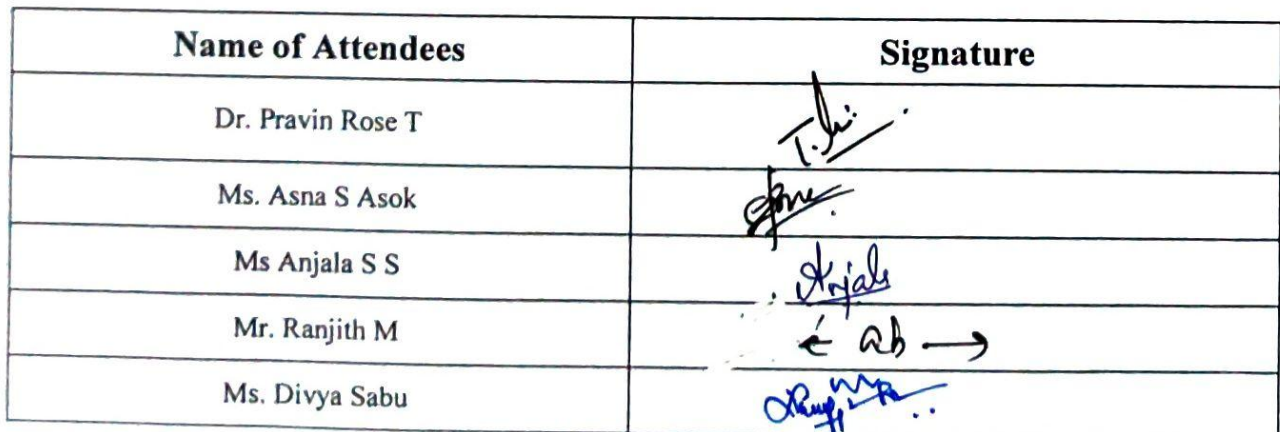 Name of Attendees Signature
Dr. Pravin Rose T
Ms. Asna S Asok
Ms Anjala S S Anjals
Mr. Ranjith M ← ab →
Ms. Divya Sabu